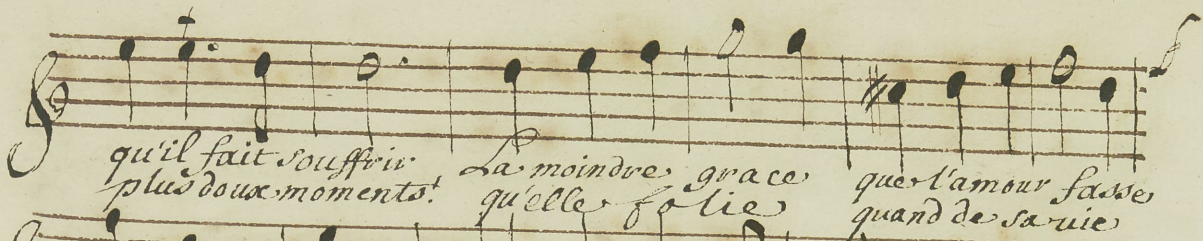 qu'il fait souffrir La moindre grace que l'amour fasse
plus doux moments! qu'elle folie quand de sa vie